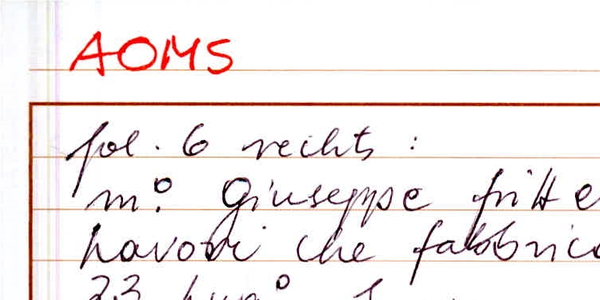 AOMS
fol. 6 rechts :
m.º Giuseppe fritte
lavori che fabbrica
23